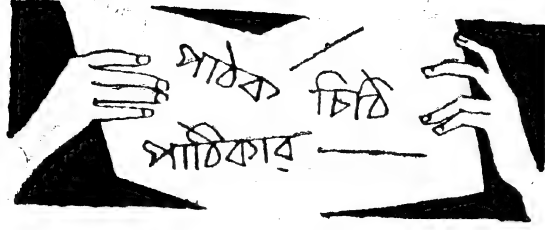 পাঠক /
চিঠি
পাঠিকার —